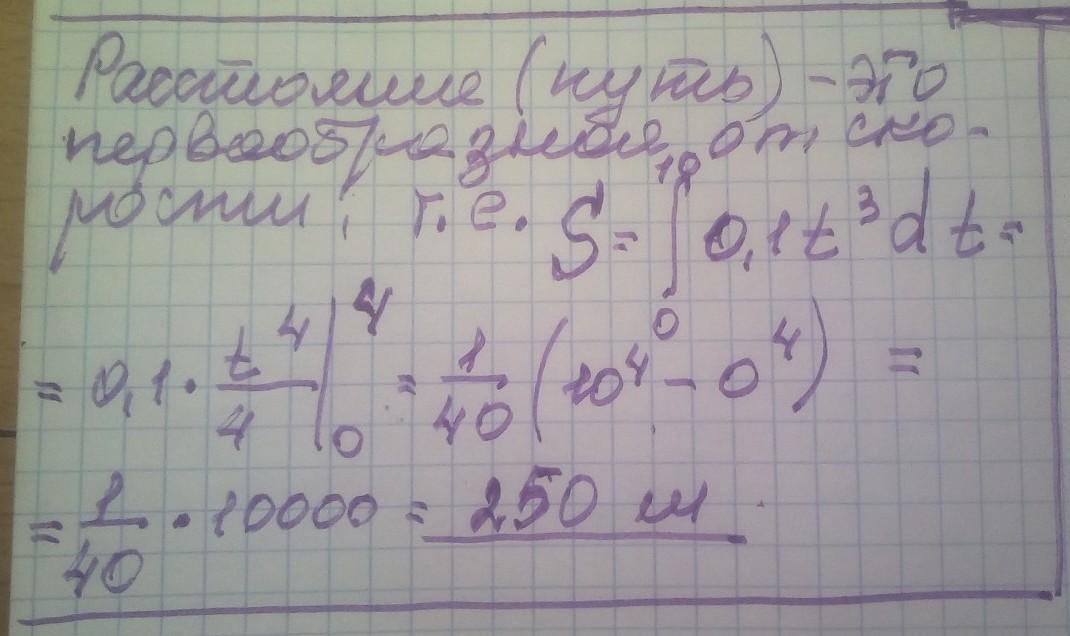 Расстояние (путь) – это
первообразная от ско-
рости, т.е. S = ∫₀¹⁰ 0,1 t³ dt =
= 0,1 · t⁴/4 |₀⁴ = 1/40 (10⁴ – 0⁴) =
= 1/40 · 10000 = 250 м